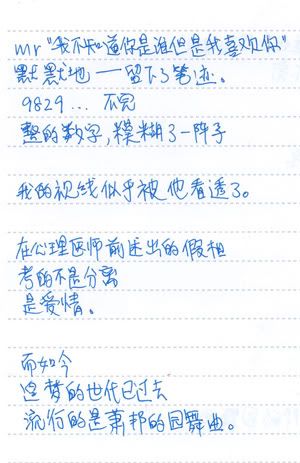 mr“我不知道你是谁但是我喜欢你”
默默地——留下了笔迹。
9829... 不完
整的数字,模糊了一阵子
我的视线似乎被他看透了。
在心理医师前述出的假相
考的不是分离
是爱情。
而如今
造梦的世代已过去
流行的是萧邦的圆舞曲。